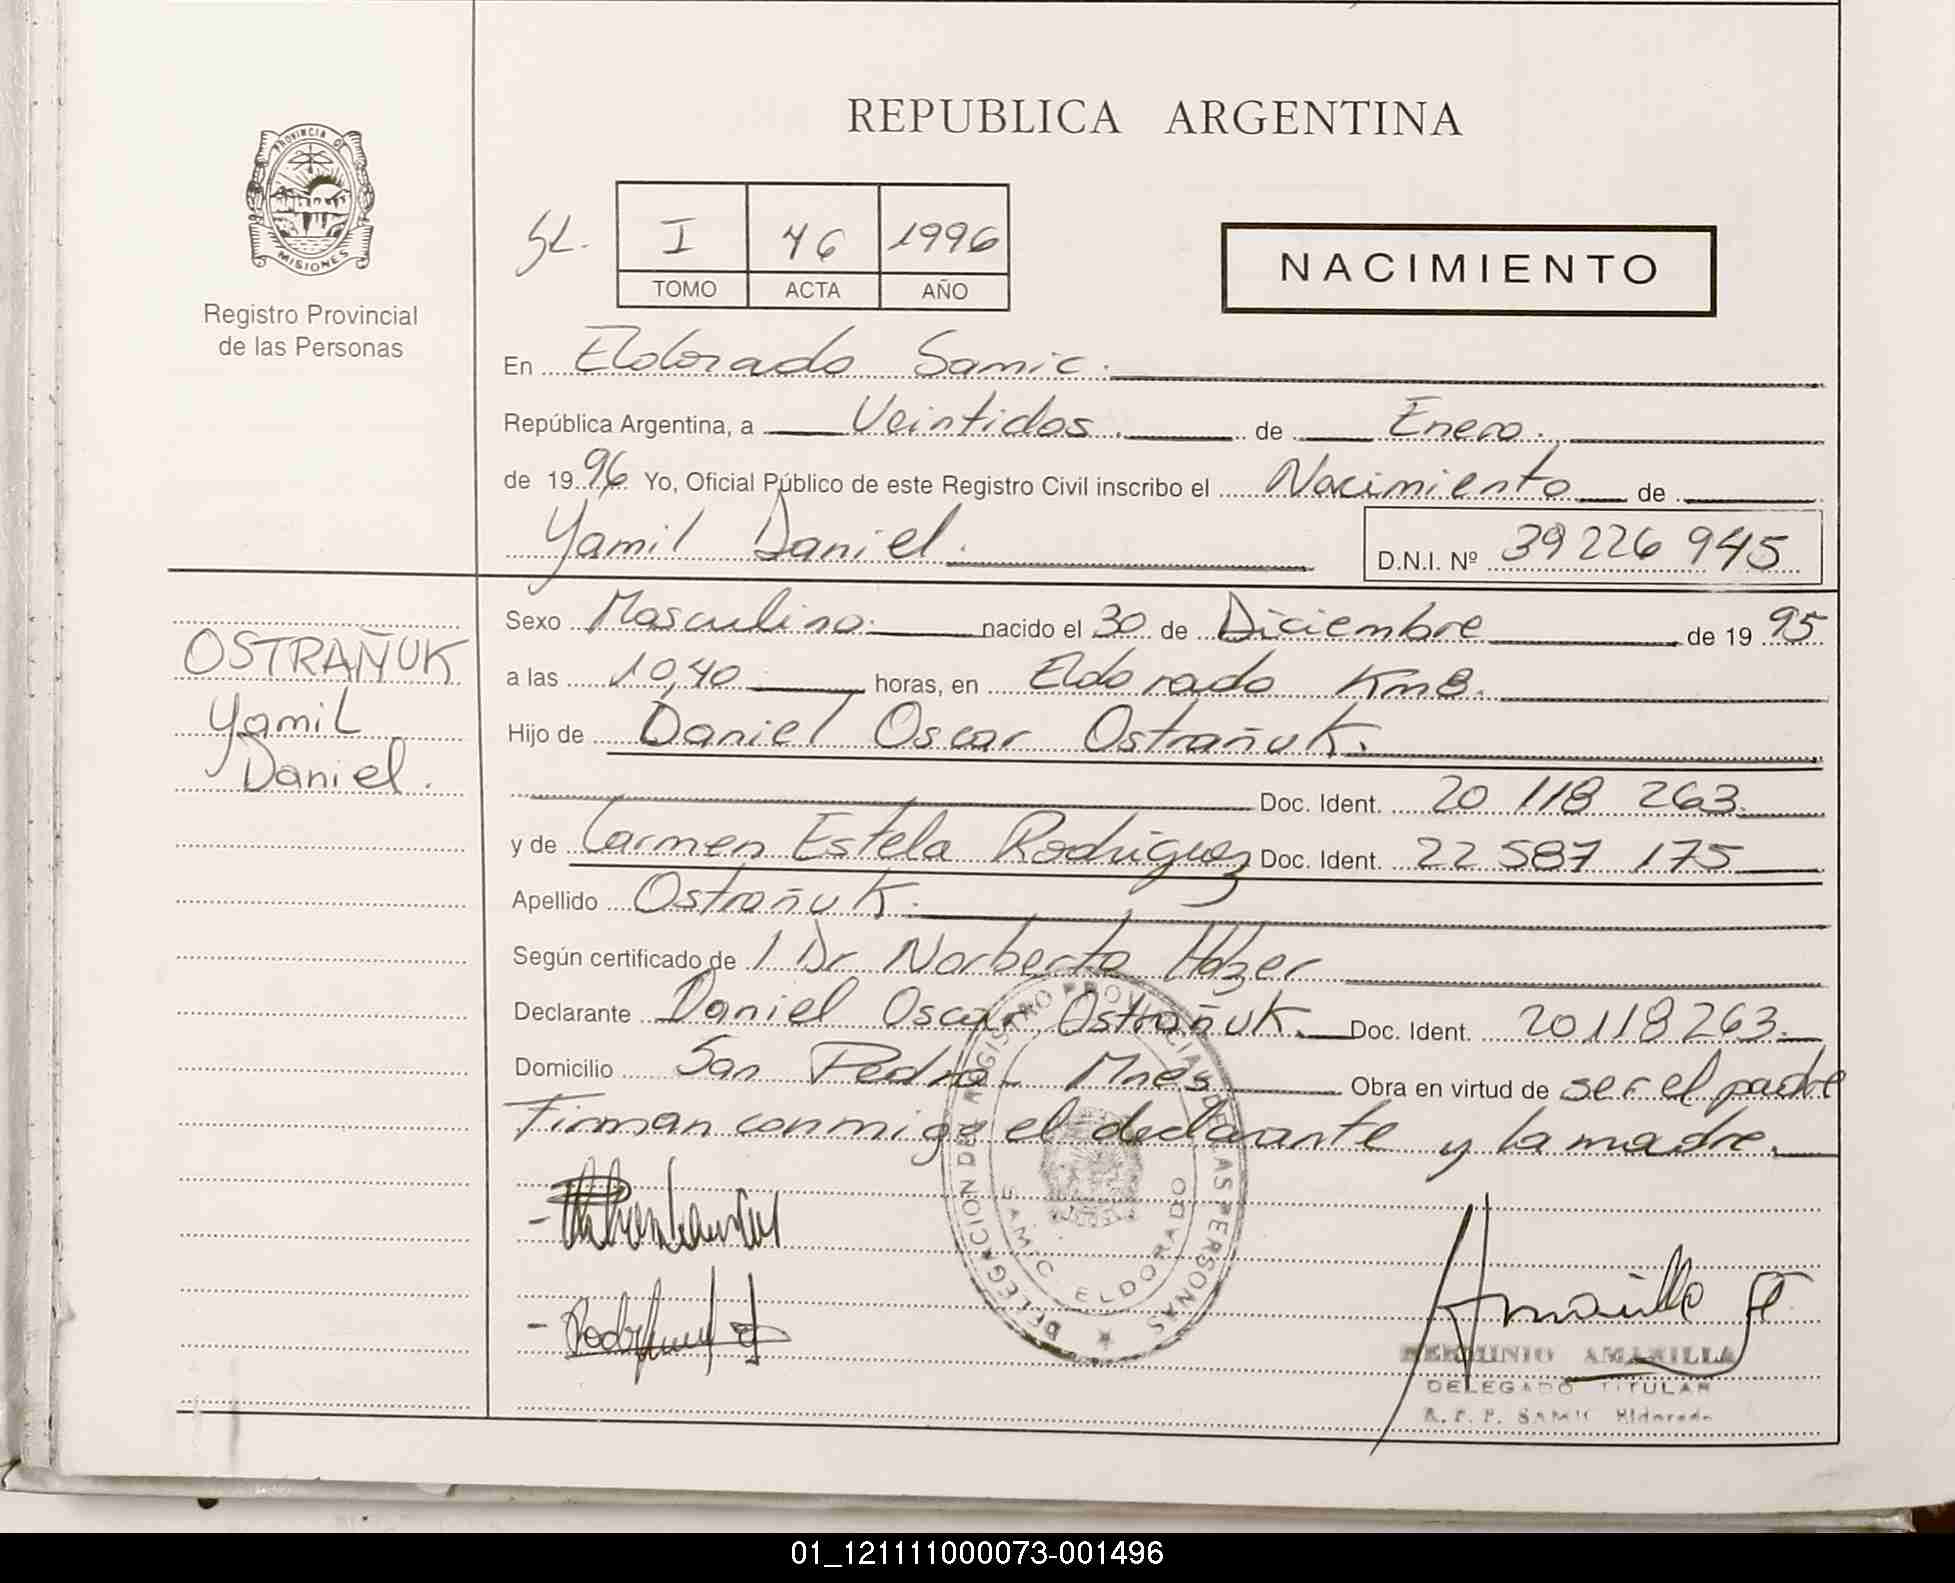 REPUBLICA ARGENTINA
PROVINCIA DE
MISIONES
Registro Provincial
de las Personas
SL. I 46 1996
TOMO ACTA AÑO
NACIMIENTO
En Eldorado Samic.
República Argentina, a Veintidos. de Enero.
de 1996 Yo, Oficial Público de este Registro Civil inscribo el Nacimiento de
Yamil Daniel. D.N.I. Nº 39 226 945
OSTRAÑUK
Yamil
Daniel.
Sexo Masculino. nacido el 30 de Diciembre de 1995
a las 10,40 horas, en Eldorado Km8.
Hijo de Daniel Oscar Ostrañuk.
Doc. Ident. 20 118 263.
y de Carmen Estela Rodriguez Doc. Ident. 22 587 175
Apellido Ostrañuk.
Según certificado de 1 Dr Norberto
Declarante Daniel Oscar Ostrañuk. Doc. Ident. 20118263.
Domicilio San Pedro - Mnes Obra en virtud de ser el padre
Firman conmigo el declarante y la madre.
DELEGACION DEL REGISTRO PROVINCIAL DE LAS PERSONAS
SAMIC ELDORADO
HERMINIO AMARILLA
DELEGADO TITULAR
R. P. P. SAMIC Eldorado
01_121111000073-001496